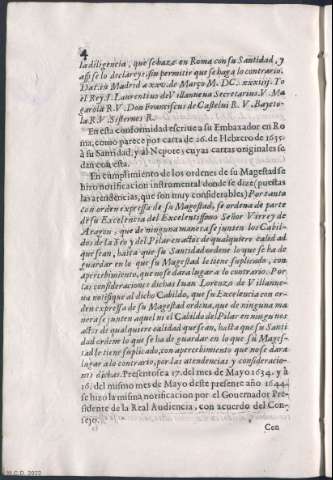 4
la diligencia, que se haze en Roma con su Santidad, y
assi se lo declareys, sin permitir que se haga lo contrario.
Dat. en Madrid a xxv. de Março M. DC. xxxiiij. Yo
el Rey. I. Laurentius de Villanueua Secretarius. V. Ma-
garola R. V. Don Franciscus de Castelui R. V. Bayeto-
la R. V. Sisternes R.
En esta conformidad escriue a su Embaxador en Ro
ma, como parece por carta de 26. de Hebrero de 1635.
à su Santidad, y al Nepote, cuyas cartas originales se
dan con esta.
En cumplimiento de los ordenes de su Magestad se
hizo notificacion instrumental donde se dize (puestas
las atendencias, que son muy considerables.) Por tanto
con orden expressa de su Magestad, se ordena de parte
de su Excelencia del Excelentissimo Señor Virrey de
Aragon, que de ninguna manera se junten los Cabil-
dos de la Seo y del Pilar en actos de qualquiere calid ad
que sean, hasta que su Santidad ordene lo que se ha de
guardar en lo que su Magestad le tiene suplicado, con
apercibimiento, que no se dara lugar a lo contrario. Por
las consideraciones dichas Iuan Lorenzo de Villanue-
ua notifique al dicho Cabildo, que su Excelencia con or-
den expressa de su Magestad ordena, que de ninguna ma
nera se junten aquel ni el Cabildo del Pilar en ningunos
actos de qualquiere calidad que sean, hasta que su Santi-
dad ordene lo que se ha de guardar en lo que su Mages-
tad le tiene suplicado, con apercibimiento que no se dara
lugar a lo contrario, por las atendencias y consideracio-
nes dichas. Presentose a 17. del mes de Mayo 1634. y à
16. del mismo mes de Mayo deste presente año 1644.
se hizo la misma notificacion por el Gouernador Pre-
sidente de la Real Audiencia, con acuerdo del Con-
sejo.
Cen